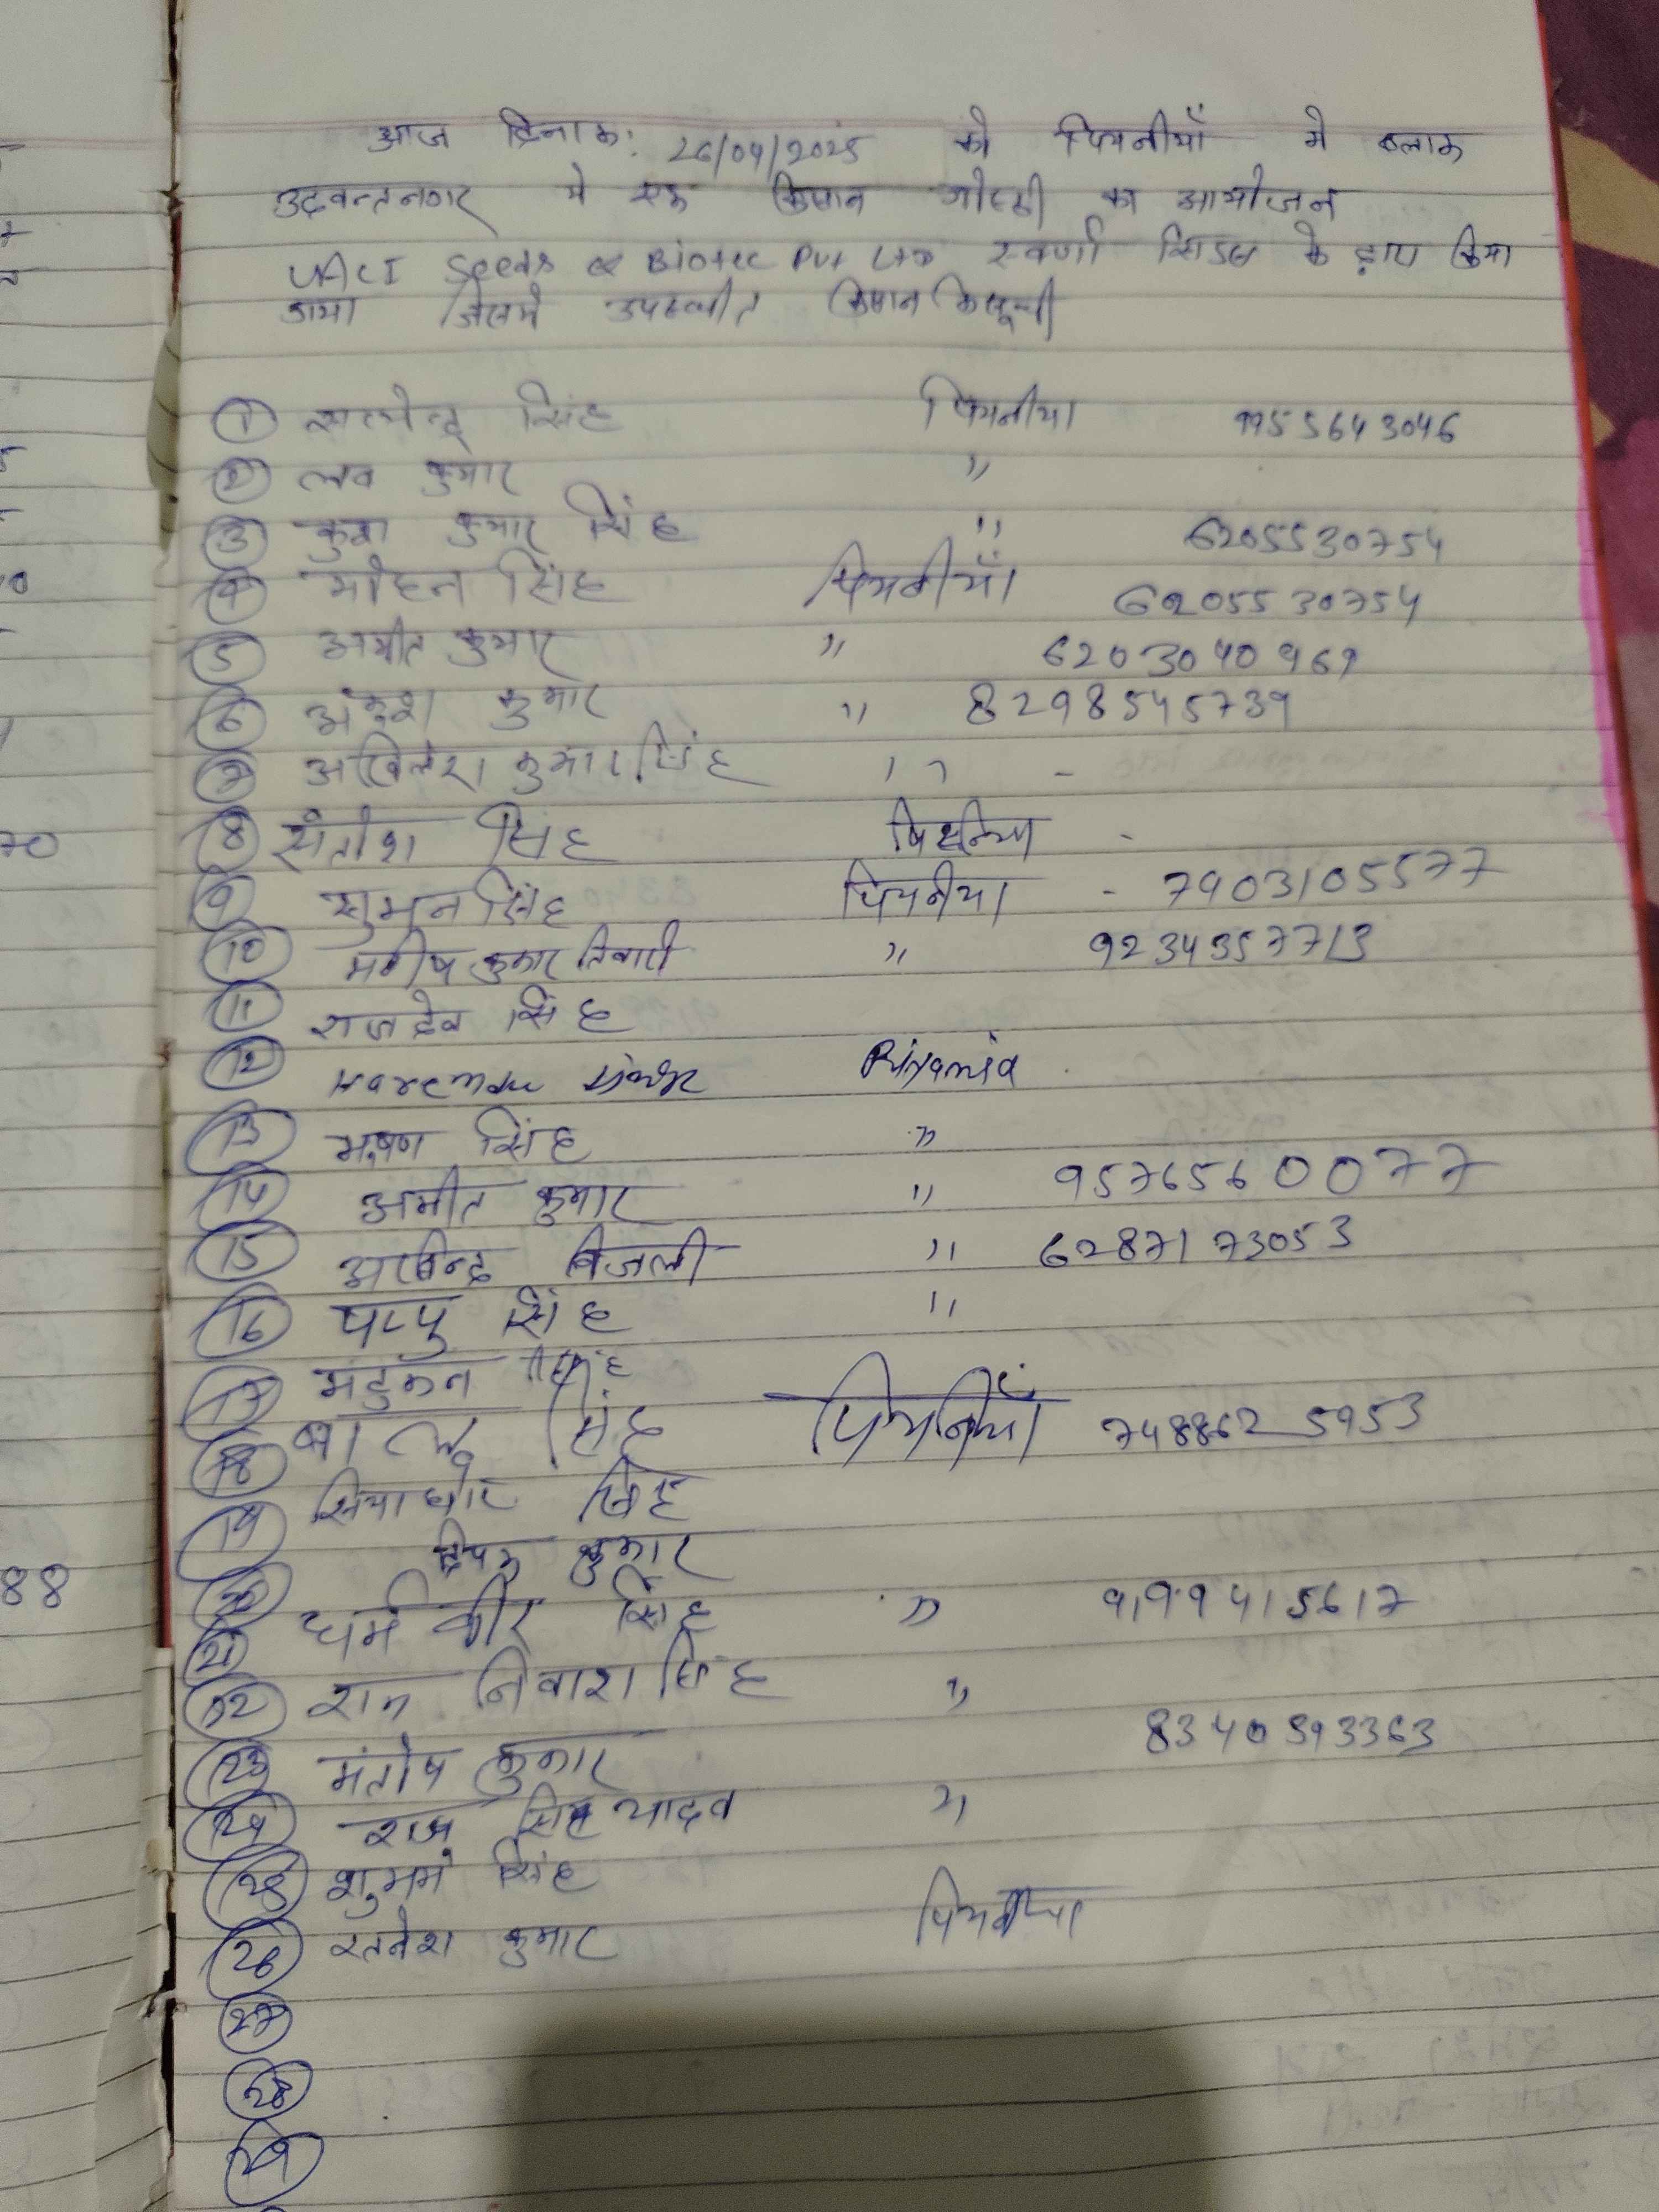 आज दिनाक: 26/04/2025 को पियनीयाँ मे ब्लाक
उदवन्तनगर मे एक किषान गोष्ठी का आयोजन
Seeds & Biotec Pvt Ltd स्वर्णा सिडस के द्वारा किया
गया जिसमे उपस्थीत किषान कि सूची
① सत्येन्द्र सिंह पियनीया 9955643046
② लव कुमार "
③ कुश कुमार सिंह " 6205530754
④ मोहन सिंह पियनीयाँ 6205530754
⑤ अमीत कुमार " 6203040969
⑥ अंकुश कुमार " 8298545739
⑦ अखिलेश कुमार सिंह " -
⑧ संतोश सिंह -
⑨ सुमन सिंह पियनीया - 7903105577
⑩ मनीष कुमार तिवारी " 9234357713
⑪ राजदेव सिंह
⑫ Harendra Singh Piiyania
⑬ भुषण सिंह "
⑭ अमीत कुमार " 9576560077
⑮ अरविन्द बिजली " 6287173053
⑯ पप्पु सिंह "
⑰ सिंह
⑱ सिंह पियनियाँ 7488625953
⑲ सिंह
⑳ दिपक कुमार
㉑ धर्म वीर सिंह " 9199415617
㉒ राम निवाश सिंह "
㉓ मंतोष कुमार 8340593363
㉔ राज सिंह यादव "
㉕ शुभम सिंह
㉖ रतनेश कुमार पियनीया
㉗
㉘
㉙
70
88